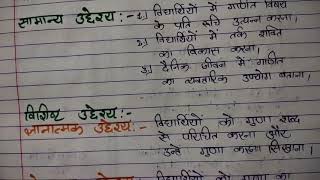 सामान्य उद्देश्य:- 1) विद्यार्थियों में गणित विषय
के प्रति रूचि उत्पन्न करना।
2) विद्यार्थियों में तर्क शक्ति
का विकास करना।
3) दैनिक जीवन में गणित
का व्यवहारिक उपयोग बताना।
विशिष्ट उद्देश्य:-
ज्ञानात्मक उद्देश्य:- विद्यार्थियों को गुणा शब्द
से परिचित करना और
उन्हे गुणा करना सिखाना।